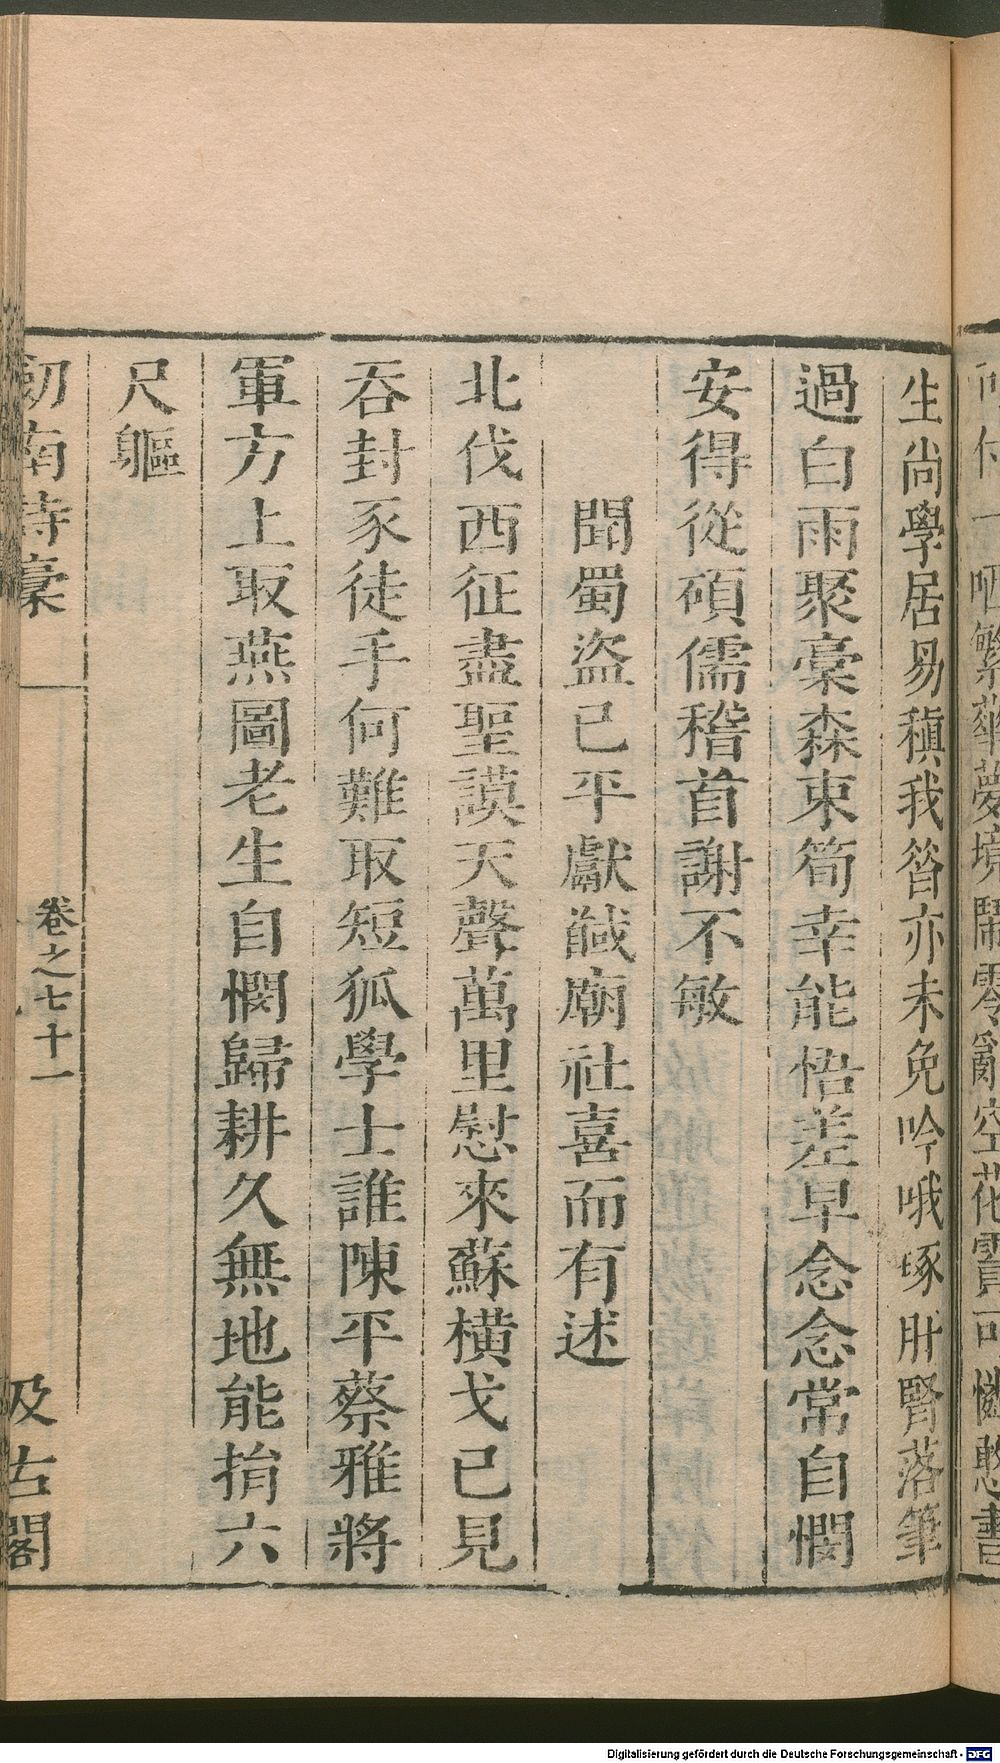 生尚學居易稹我咎亦未免吟哦琢肝腎落筆
過白雨聚槀森束筍幸能悟差早念念常自憫
安得從碩儒稽首謝不敏
聞蜀盜已平獻馘廟社喜而有述
北伐西征盡聖謨天聲萬里慰來蘇橫戈已見
吞封豕徒手何難取短狐學士誰陳平蔡雅將
軍方上取燕圖老生自憫歸耕久無地能捐六
尺軀
劒南詩槀
卷之七十一
汲古閣
Digitalisierung gefördert durch die Deutsche Forschungsgemeinschaft - DFG